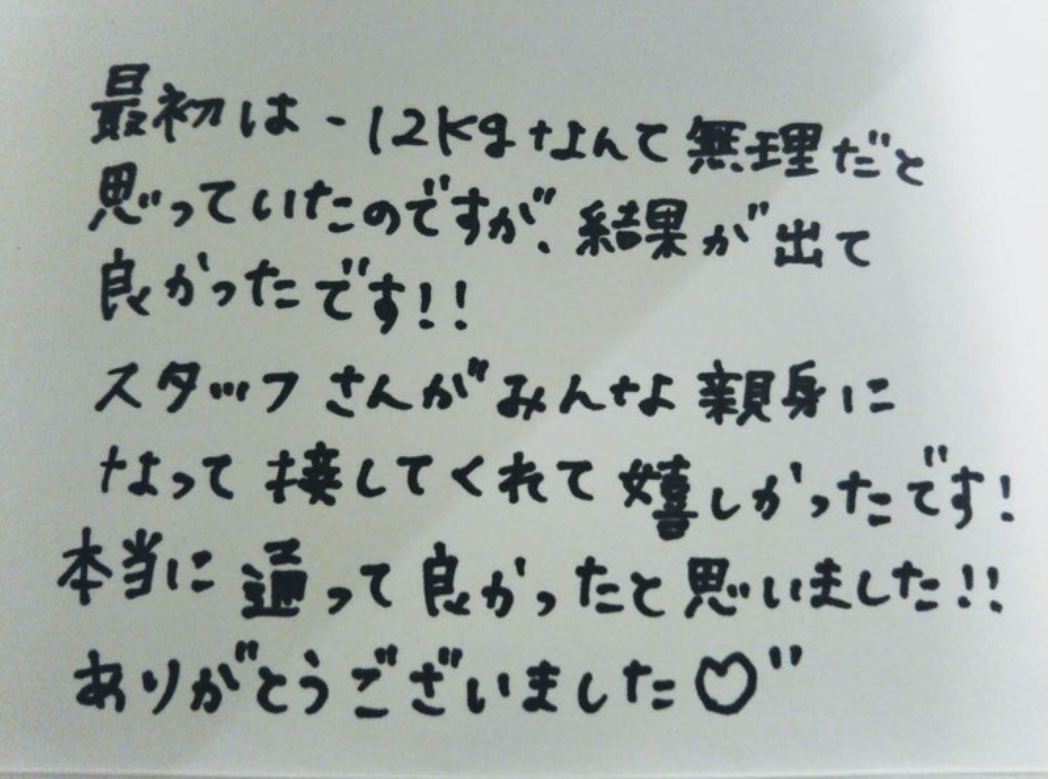 最初は-12kgなんて無理だと
思っていたのですが、結果が出て
良かったです!!
スタッフさんがみんな親身に
なって接してくれて嬉しかったです!
本当に通って良かったと思いました!!
ありがとうございました♡"